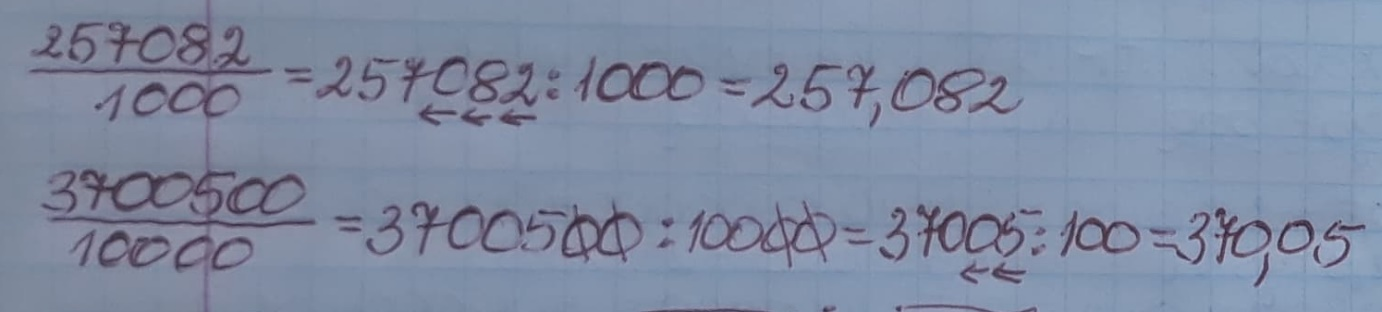 257082/1000 = 257082 : 1000 = 257,082
3700500/10000 = 3700500 : 10000 = 37005 : 100 = 370,05